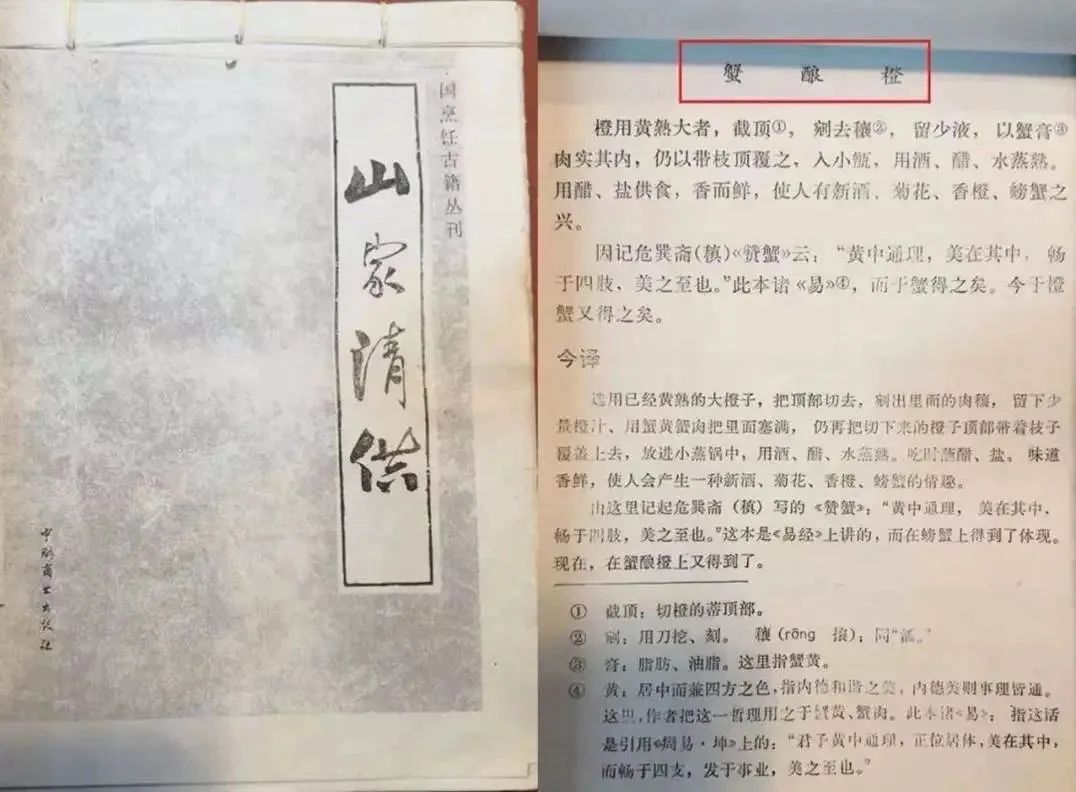 国烹饪古籍丛刊
山家清供
中国商业出版社
蟹酿橙
橙用黄熟大者，截顶①，剜去穰②，留少液，以蟹膏③
肉实其内，仍以带枝顶覆之，入小甑，用酒、醋、水蒸熟。
用醋、盐供食，香而鲜，使人有新酒、菊花、香橙、螃蟹之
兴。
因记危巽斋(稹)《赞蟹》云：“黄中通理，美在其中，畅
于四肢、美之至也。”此本诸《易》④，而于蟹得之矣。今于橙
蟹又得之矣。
今译
选用已经黄熟的大橙子，把顶部切去，剜出里面的肉穰，留下少
量橙汁、用蟹黄蟹肉把里面塞满，仍再把切下来的橙子顶部带着枝子
覆盖上去，放进小蒸锅中，用酒、醋、水蒸熟。吃时蘸醋、盐。味道
香鲜，使人会产生一种新酒、菊花、香橙、螃蟹的情趣。
由这里记起危巽斋（稹）写的《赞蟹》：“黄中通理，美在其中，
畅于四肢，美之至也。”这本是《易经》上讲的，而在螃蟹上得到了体现。
现在，在蟹酿橙上又得到了。
① 截顶：切橙的蒂顶部。
② 剜：用刀挖、刻。 穰（rōng 掖）；同“瓤。”
③ 膏：脂肪、油脂。这里指蟹黄。
④ 黄：居中而兼四方之色，指内德和谐之美，内德美则事理皆通。
这里，作者把这一哲理用之于蟹黄、蟹肉。此本诸《易》：指这话
是引用《周易·坤》上的：“君子黄中通理，正位居体，美在其中，
而畅于四支，发于事业，美之至也。”